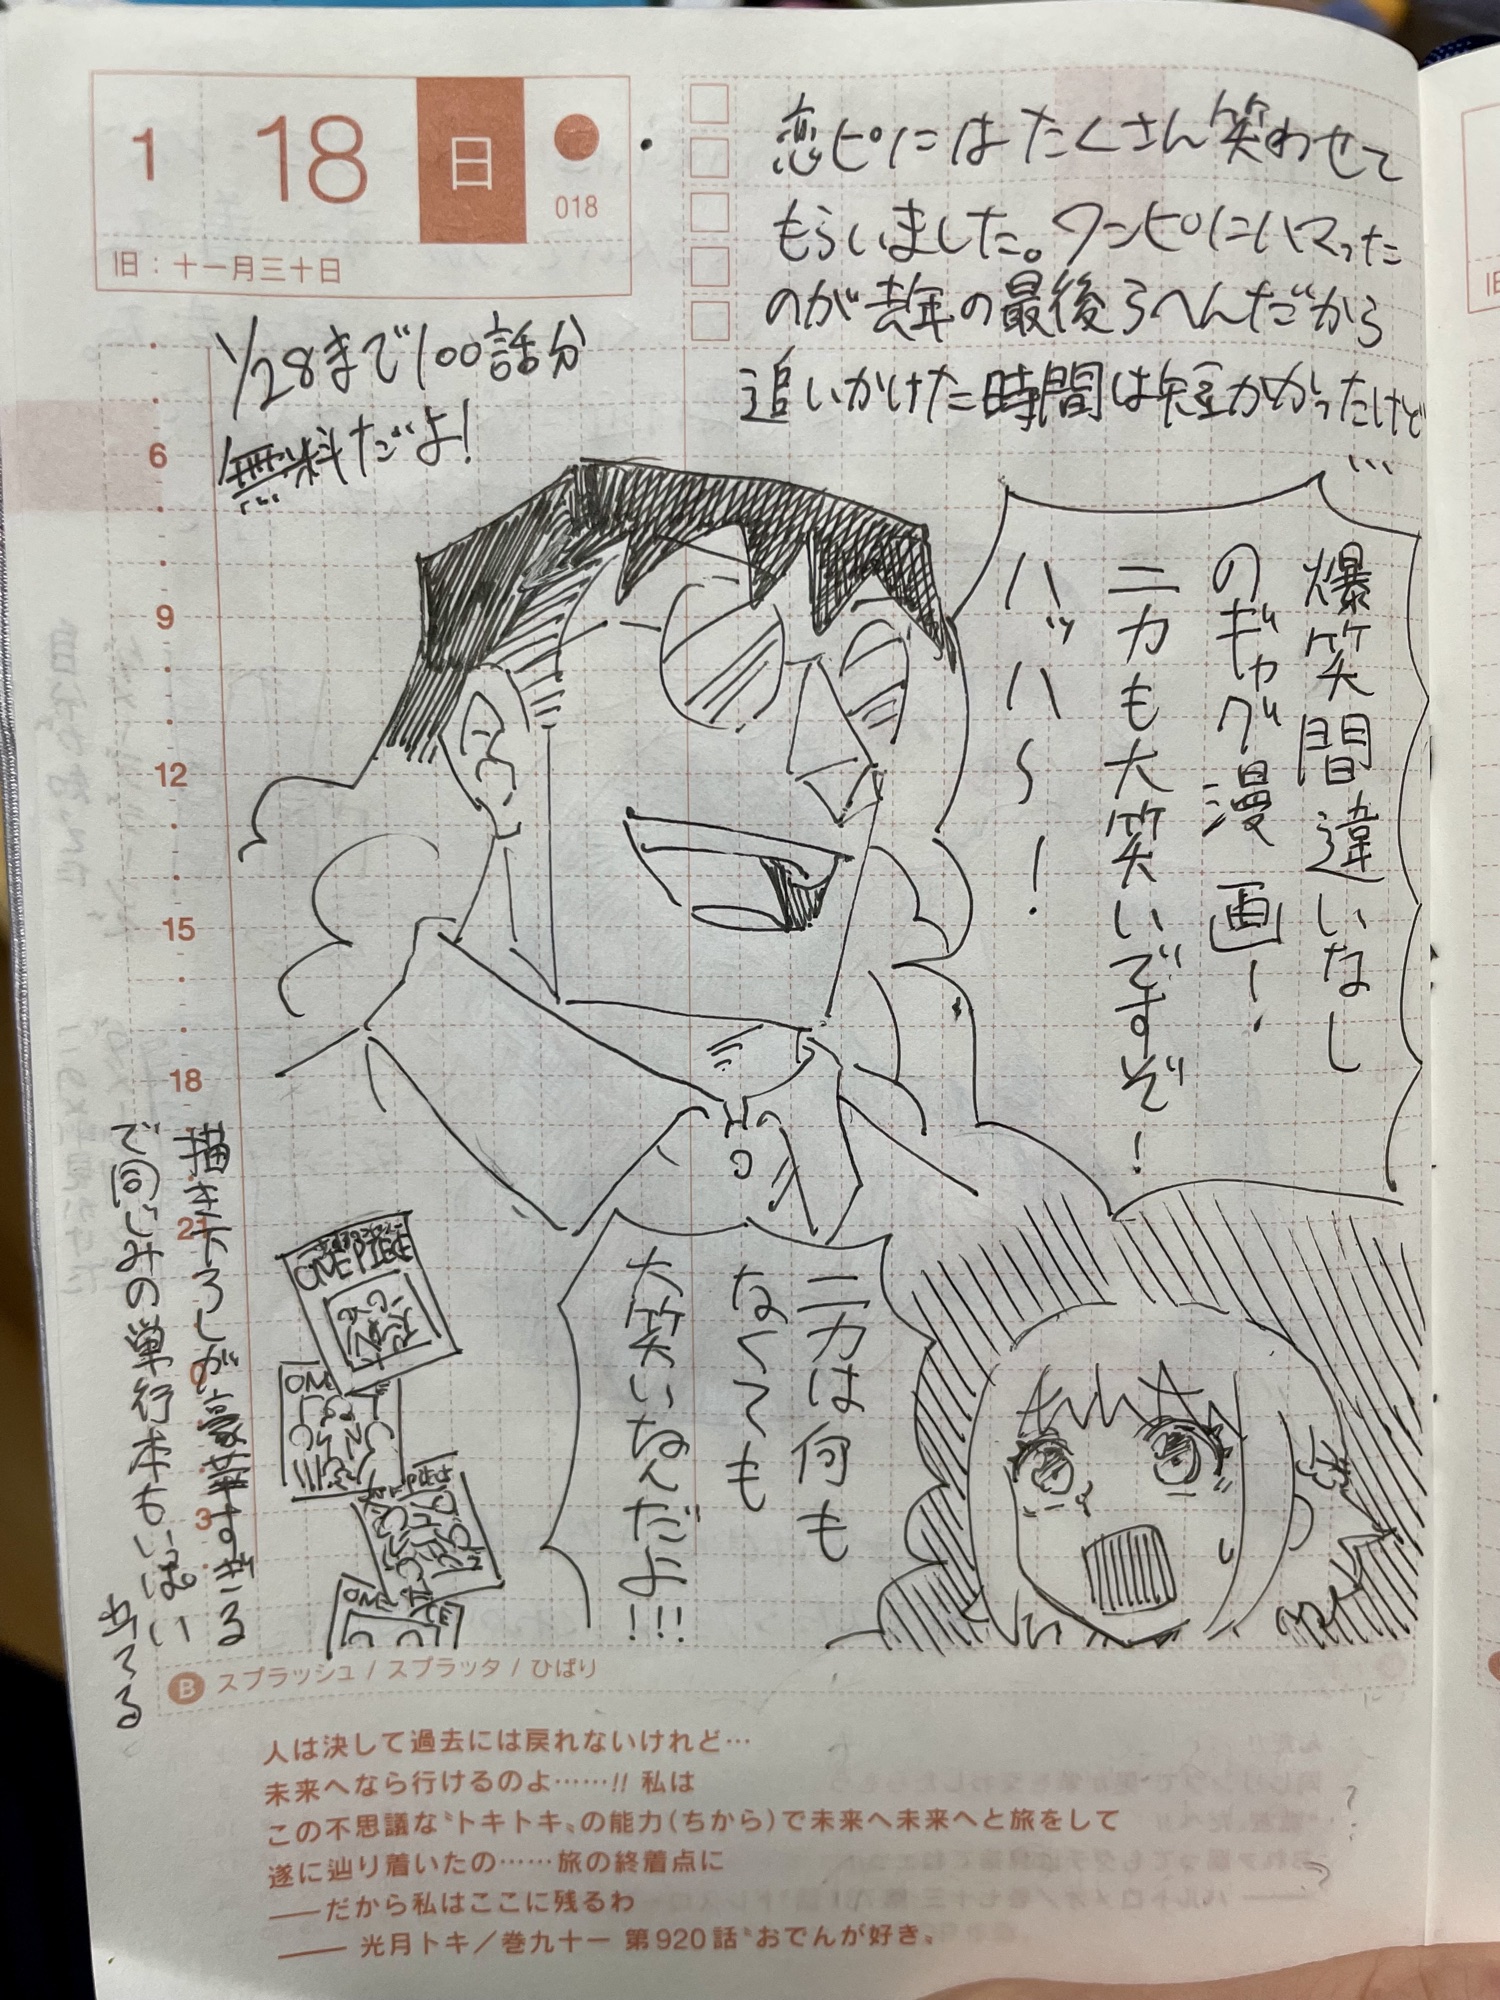 1 18 日
018
旧：十一月三十日
恋ピにはたくさん笑わせて
もらいました。ワンピにハマった
のが去年の最後らへんだから
追いかけた時間は短かかったけど
…
1/28まで100話分
無料だよ！
爆笑間違いなし
のギャグ漫画！
ニカも大笑いですぞ！
ハッハ〜！
6
9
12
15
18
21
0
3
描き下ろしが豪華すぎる
で同じみの単行本もいっぱい
当てる
ONE PIECE
ONE
ONE PIECE
ニカは何も
なくても
大笑いなんだよ!!!
B スプラッシュ / スプラッタ / ひばり
人は決して過去には戻れないけれど…
未来へなら行けるのよ……!! 私は
この不思議な〝トキトキ〟の能力（ちから）で未来へ未来へと旅をして
遂に辿り着いたの……旅の終着点に
――だから私はここに残るわ
―― 光月トキ／巻九十一 第920話〝おでんが好き〟